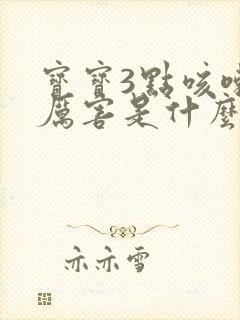 寶寶3點咳嗽
厲害是什麼
亦亦雪